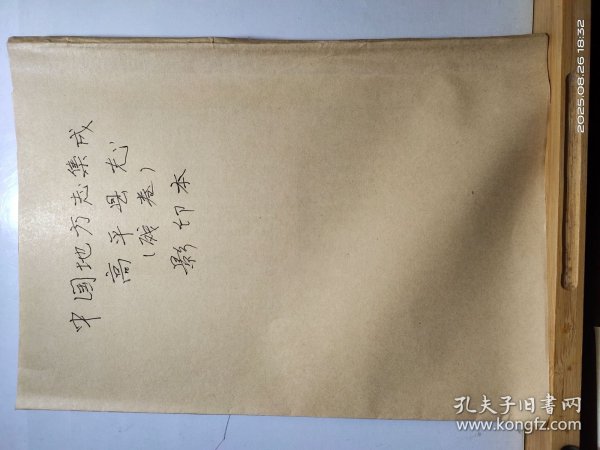 中国地方志集成
高平县志
(残卷)
影印本
2025.08.26 18:32
孔夫子旧书网
www.kongfz.com